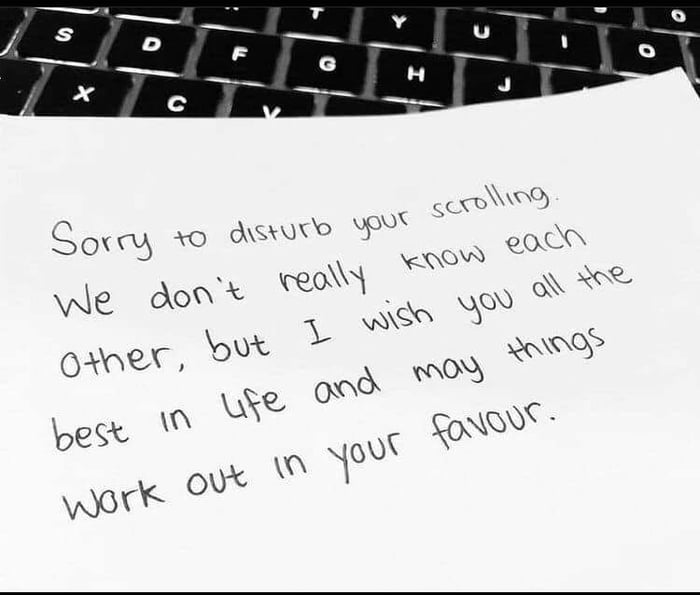 T Y U I O
S D F G H J
X C V
Sorry to disturb your scrolling.
We don't really know each
other, but I wish you all the
best in life and may things
work out in your favour.